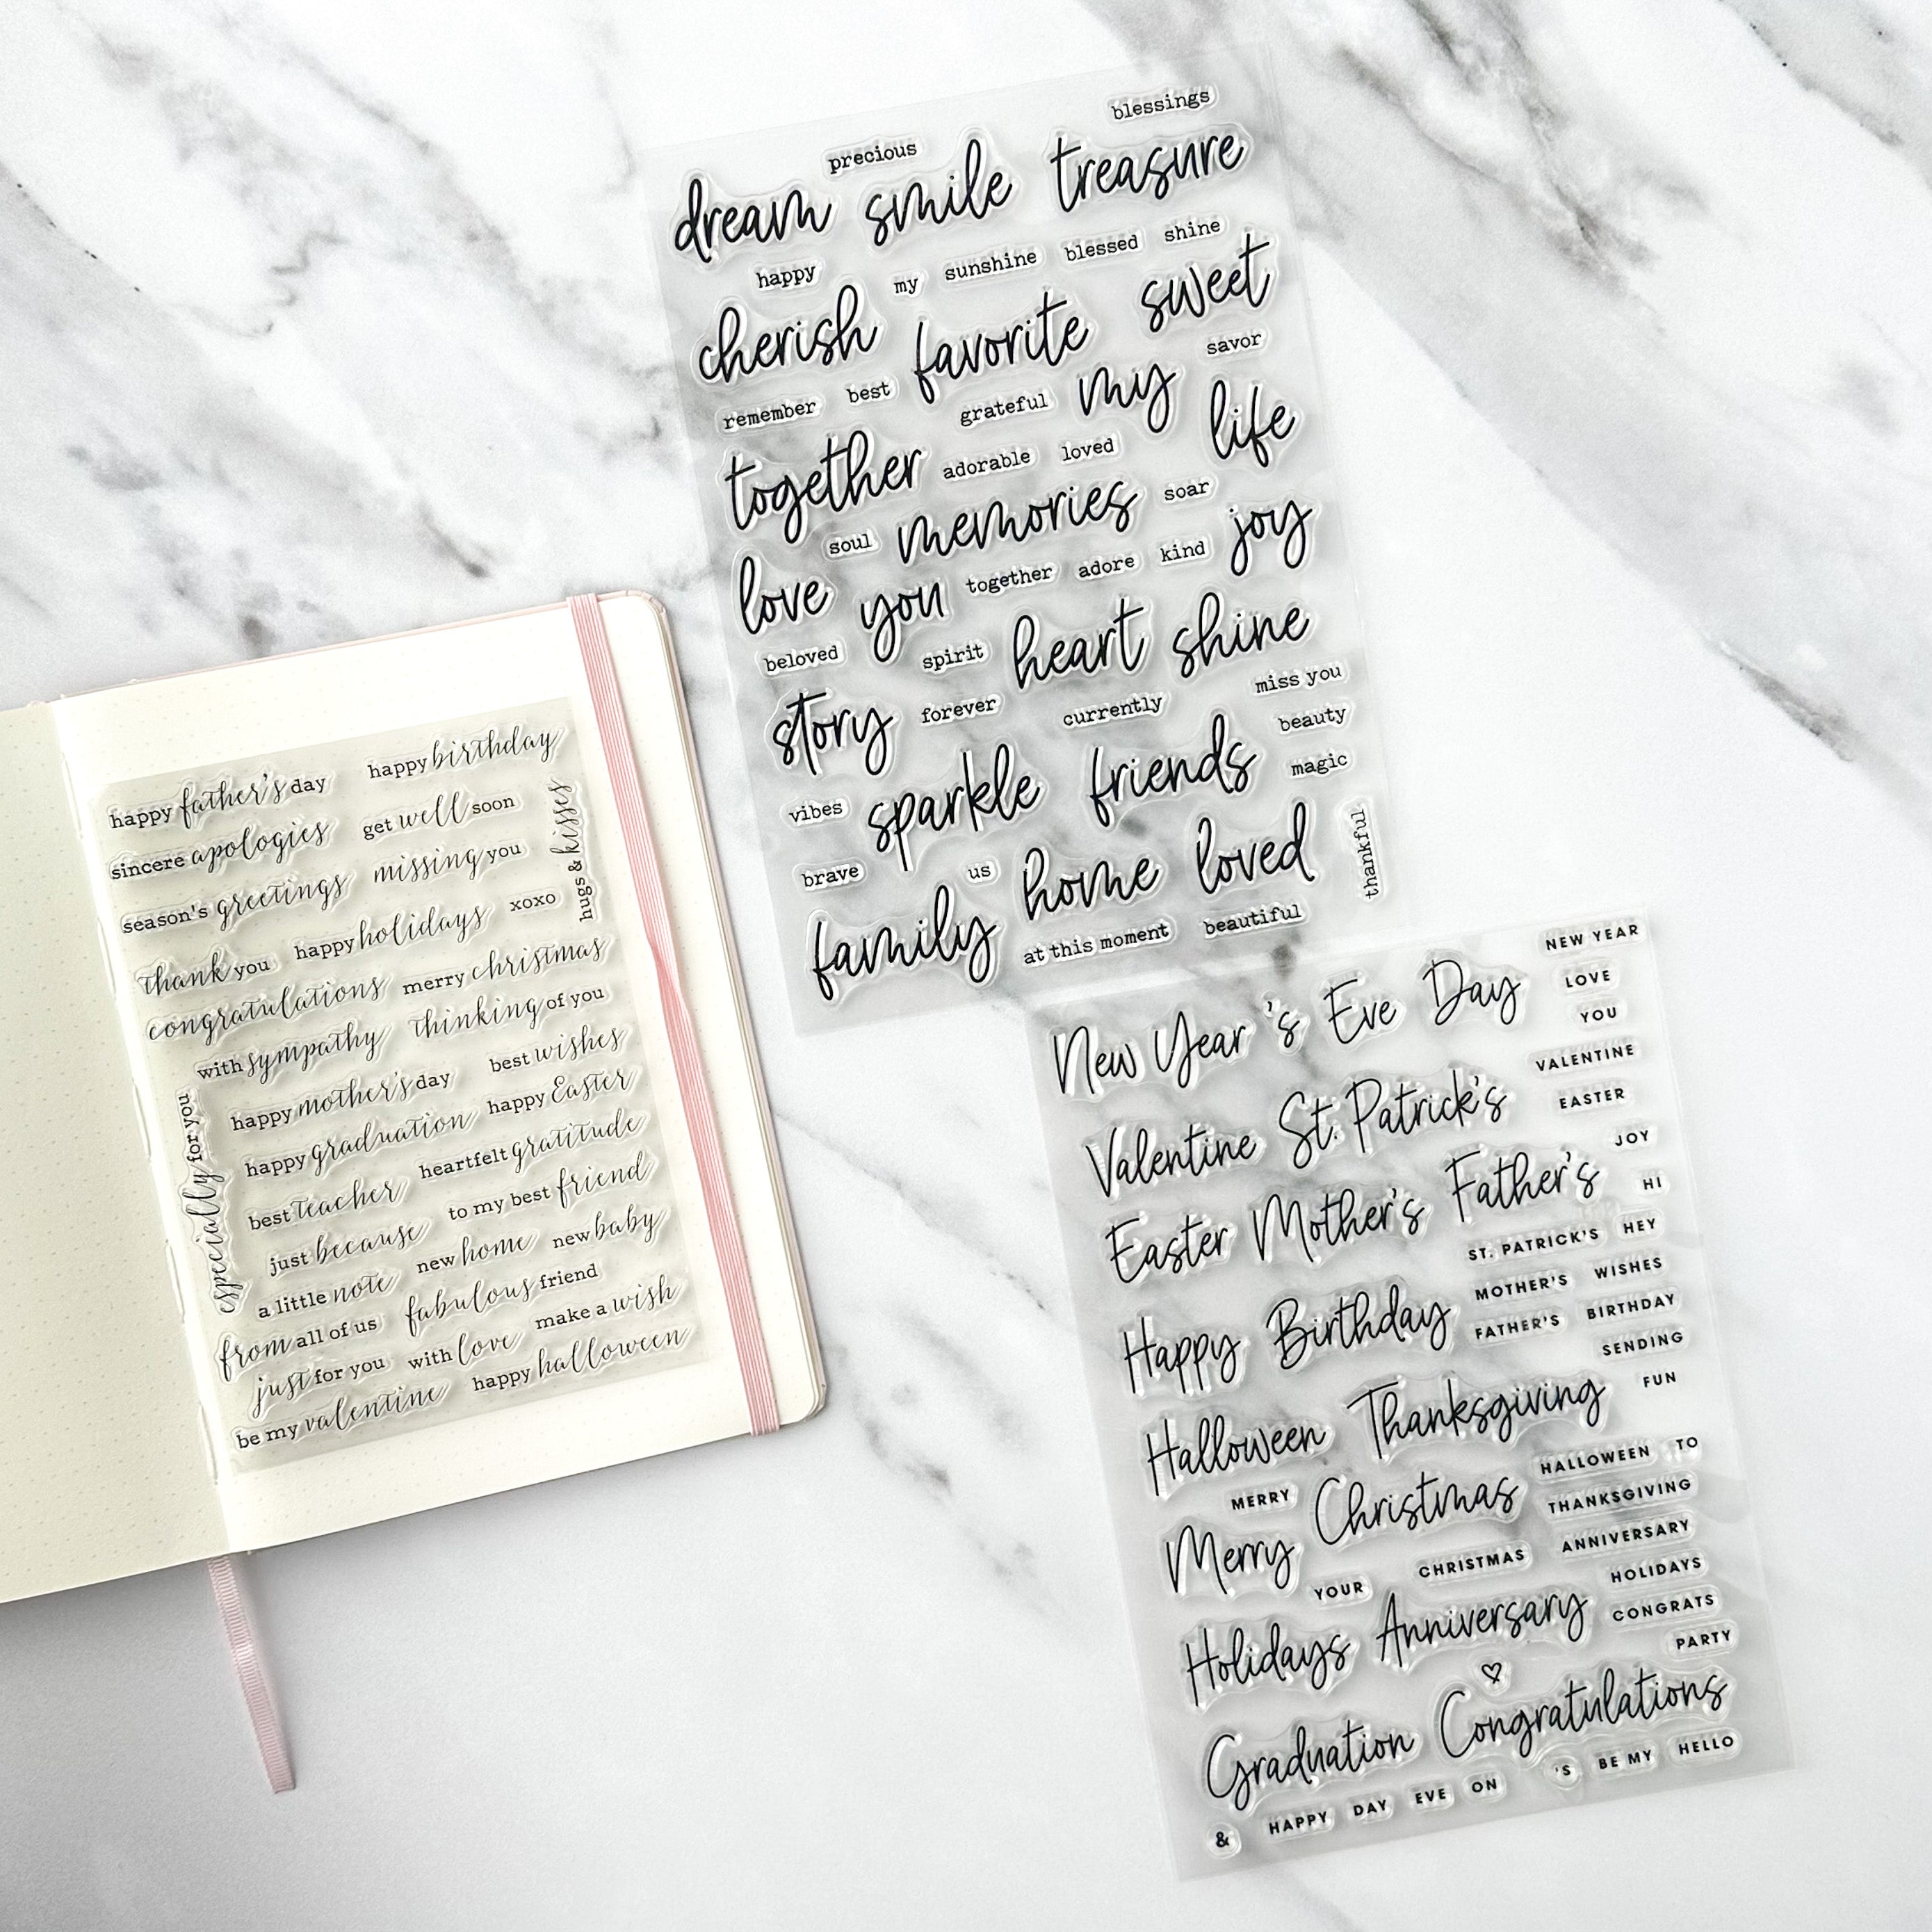 happy father's day happy birthday
sincere apologies get well soon
season's greetings missing you
hugs & kisses
thank you happy holidays xoxo
congratulations merry christmas
with sympathy thinking of you
happy mother's day best wishes
happy graduation happy Easter
especially for you
best teacher heartfelt gratitude
just because to my best friend
a little note new home new baby
from all of us fabulous friend
just for you with love make a wish
be my valentine happy halloween
precious blessings
dream smile treasure
happy my sunshine blessed shine
cherish favorite sweet
remember best grateful my savor
together adorable loved life
soul memories soar
love you together adore kind joy
beloved spirit heart shine
story forever currently miss you
beauty
vibes sparkle friends magic
brave us home loved thankful
family at this moment beautiful
New Year 's Eve Day NEW YEAR
LOVE
YOU
Valentine St. Patrick's VALENTINE
EASTER
Easter Mother's Father's JOY
HI
ST. PATRICK'S HEY
MOTHER'S WISHES
Happy Birthday FATHER'S BIRTHDAY
SENDING
Halloween Thanksgiving FUN
HALLOWEEN TO
MERRY Christmas THANKSGIVING
Merry CHRISTMAS ANNIVERSARY
YOUR HOLIDAYS
Holidays Anniversary CONGRATS
PARTY
Graduation Congratulations
& HAPPY DAY EVE ON 'S BE MY HELLO